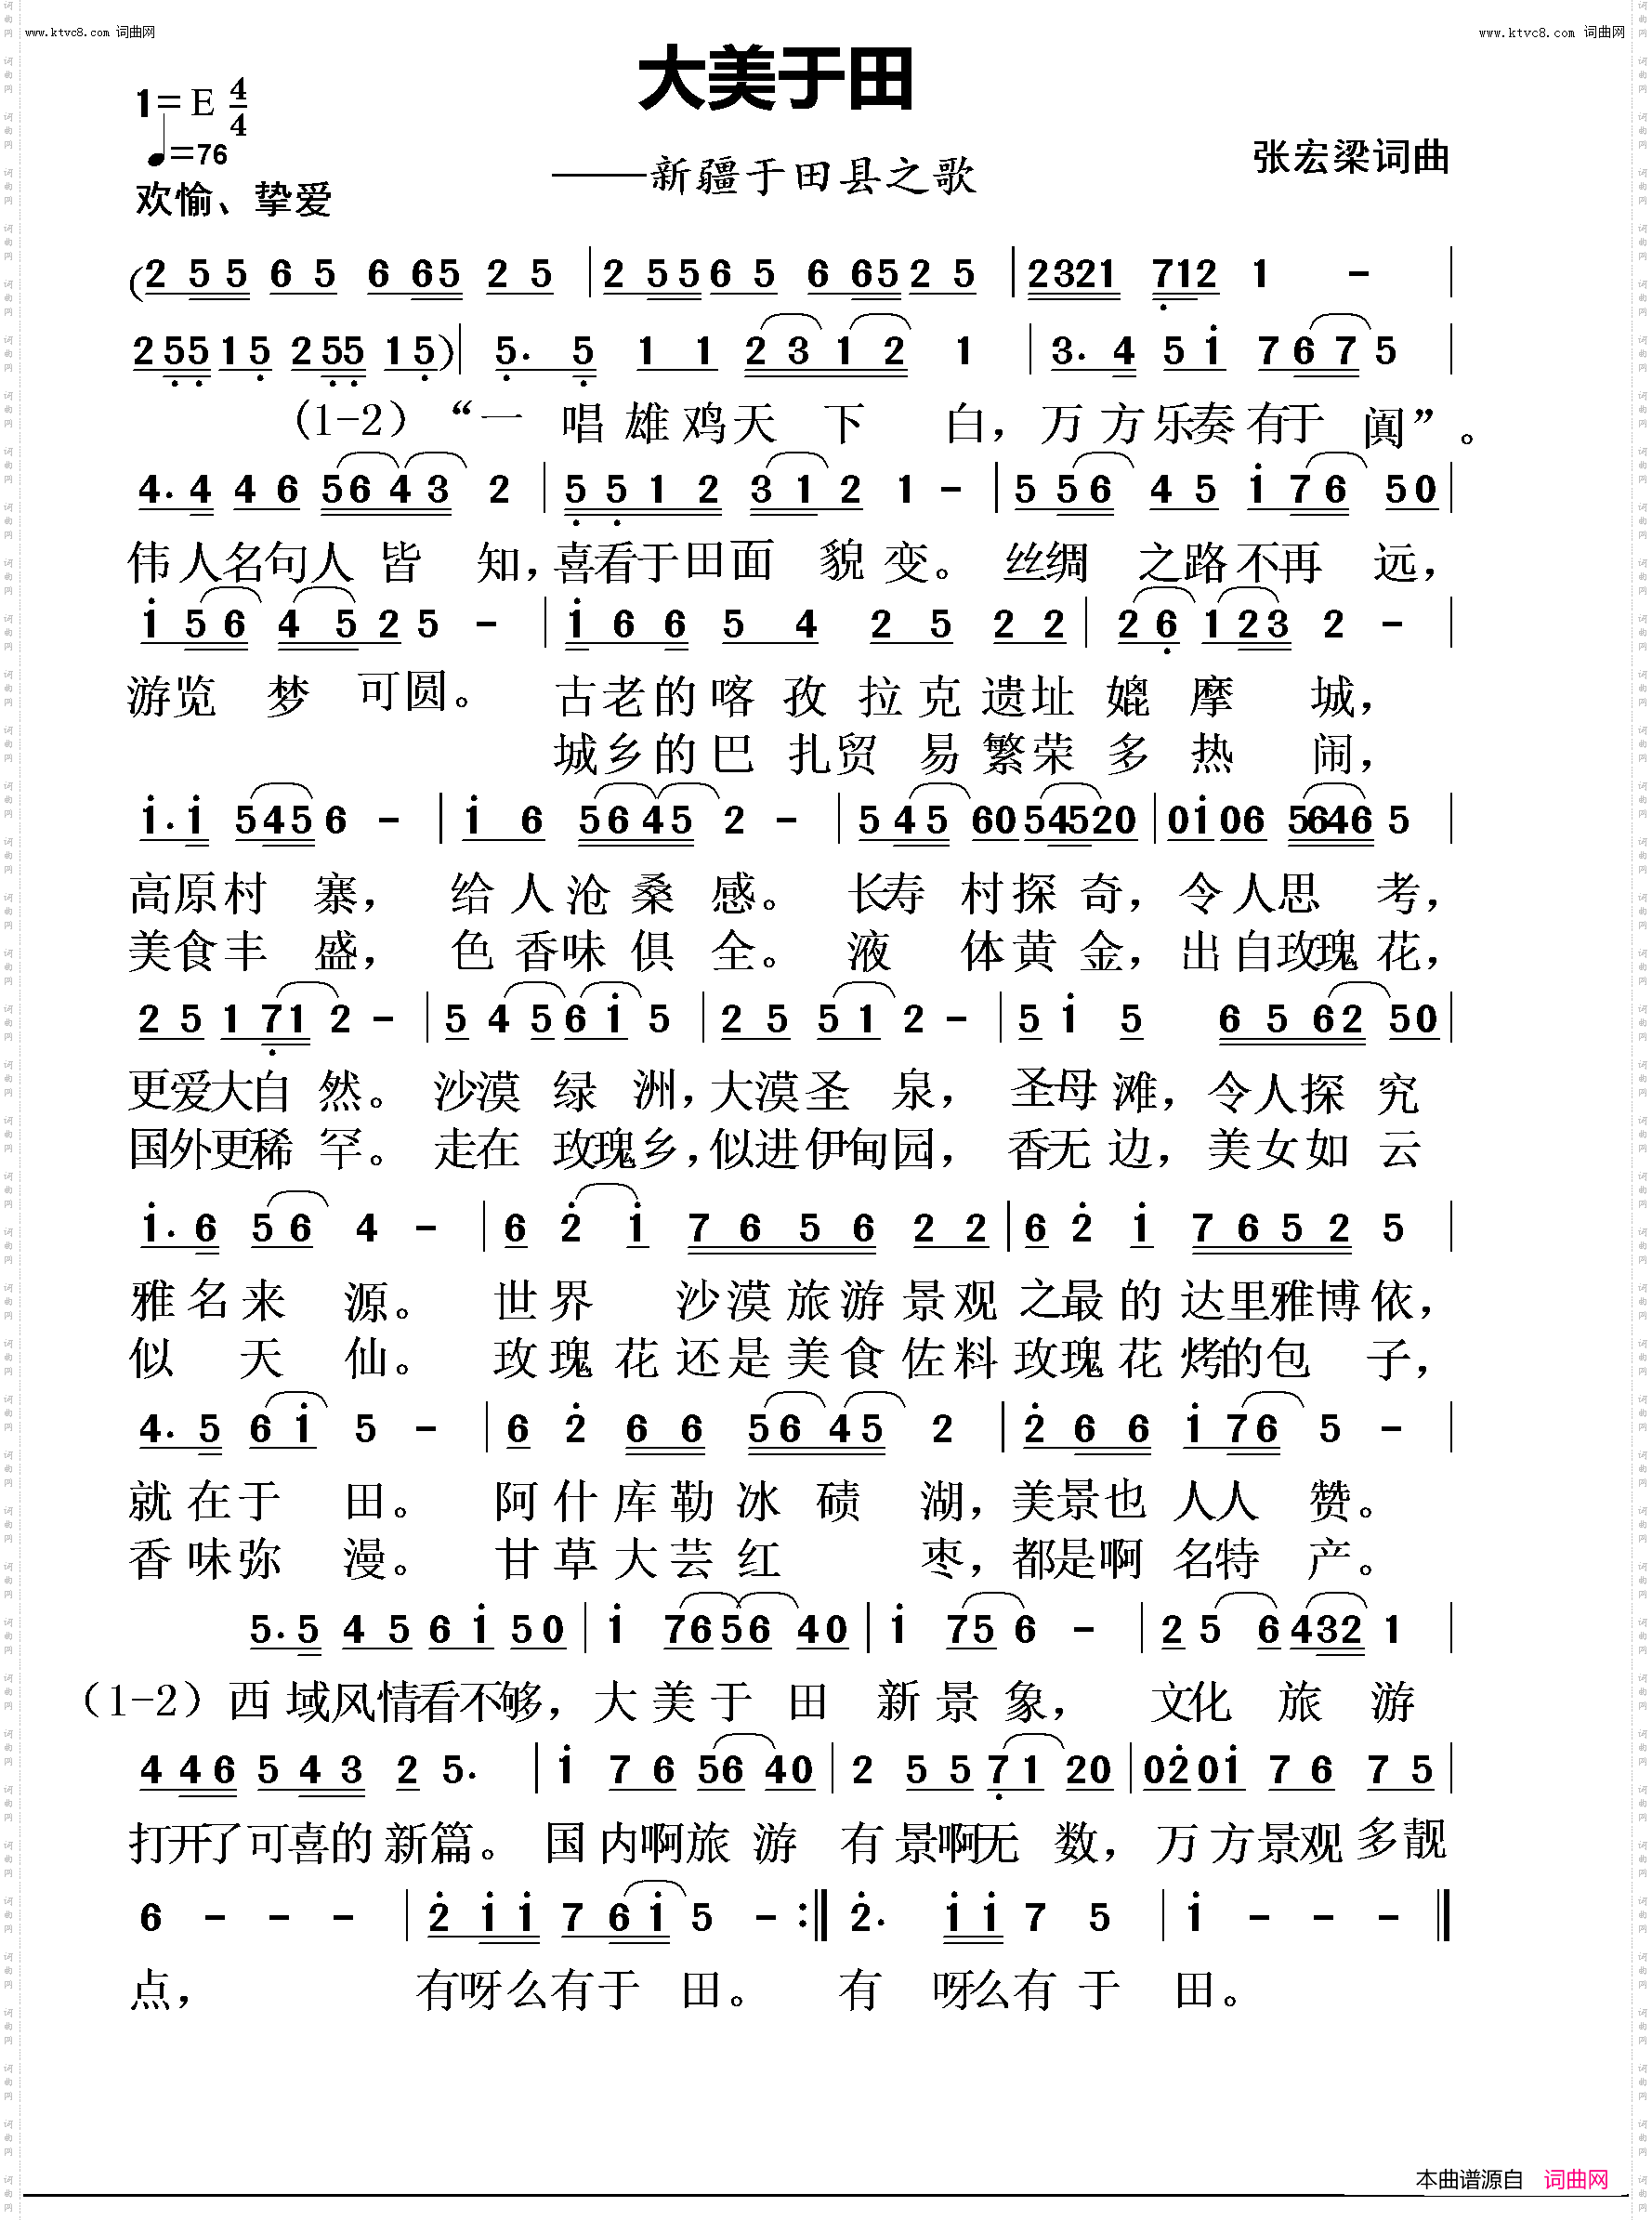 www.ktvc8.com 词曲网
www.ktvc8.com 词曲网
大美于田
1=E 4/4
♩=76
——新疆于田县之歌
张宏梁词曲
欢愉、挚爱
(2 5 5 6 5 6 65 2 5 | 2 5 5 6 5 6 65 2 5 | 2321 712 1 - |
2 55 1 5 2 55 1 5) | 5. 5 1 1 2 3 1 2 1 | 3. 4 5 i 7 6 7 5 |
(1-2)“一唱雄鸡天下白，万方乐奏有于阗”。
4. 4 4 6 56 4 3 2 | 5 5 1 2 3 1 2 1 - | 5 56 4 5 i 76 50 |
伟人名句人皆知，喜看于田面貌变。丝绸之路不再远，
i 56 4 5 2 5 - | i 6 6 5 4 2 5 2 2 | 2 6 1 23 2 - |
游览梦可圆。古老的喀孜拉克遗址媲摩城，
城乡的巴扎贸易繁荣多热闹，
i. i 545 6 - | i 6 56 45 2 - | 5 45 60 54520 | 0i 06 5646 5 |
高原村寨，给人沧桑感。长寿村探奇，令人思考，
美食丰盛，色香味俱全。液体黄金，出自玫瑰花，
2 5 1 71 2 - | 5 4 5 6 i 5 | 2 5 5 1 2 - | 5 i 5 6 5 62 50 |
更爱大自然。沙漠绿洲，大漠圣泉，圣母滩，令人探究
国外更稀罕。走在玫瑰乡，似进伊甸园，香无边，美女如云
i. 6 5 6 4 - | 6 2 i 7 6 5 6 2 2 | 6 2 i 7 6 5 2 5 |
雅名来源。世界沙漠旅游景观之最的达里雅博依，
似天仙。玫瑰花还是美食佐料玫瑰花烤的包子，
4. 5 6 i 5 - | 6 2 6 6 56 45 2 | 2 6 6 i 76 5 - |
就在于田。阿什库勒冰碛湖，美景也人人赞。
香味弥漫。甘草大芸红枣，都是啊名特产。
5. 5 4 5 6 i 50 | i 7656 40 | i 75 6 - | 2 5 6 432 1 |
(1-2)西域风情看不够，大美于田新景象，文化旅游
4 46 5 4 3 2 5. | i 7 6 56 40 | 2 5 5 7 1 20 | 020i 7 6 7 5 |
打开了可喜的新篇。国内啊旅游有景啊无数，万方景观多靓
6 - - - | 2 i i 7 6 i 5 - :‖ 2. i i 7 5 | i - - - ‖
点，有呀么有于田。有呀么有于田。
本曲谱源自 词曲网